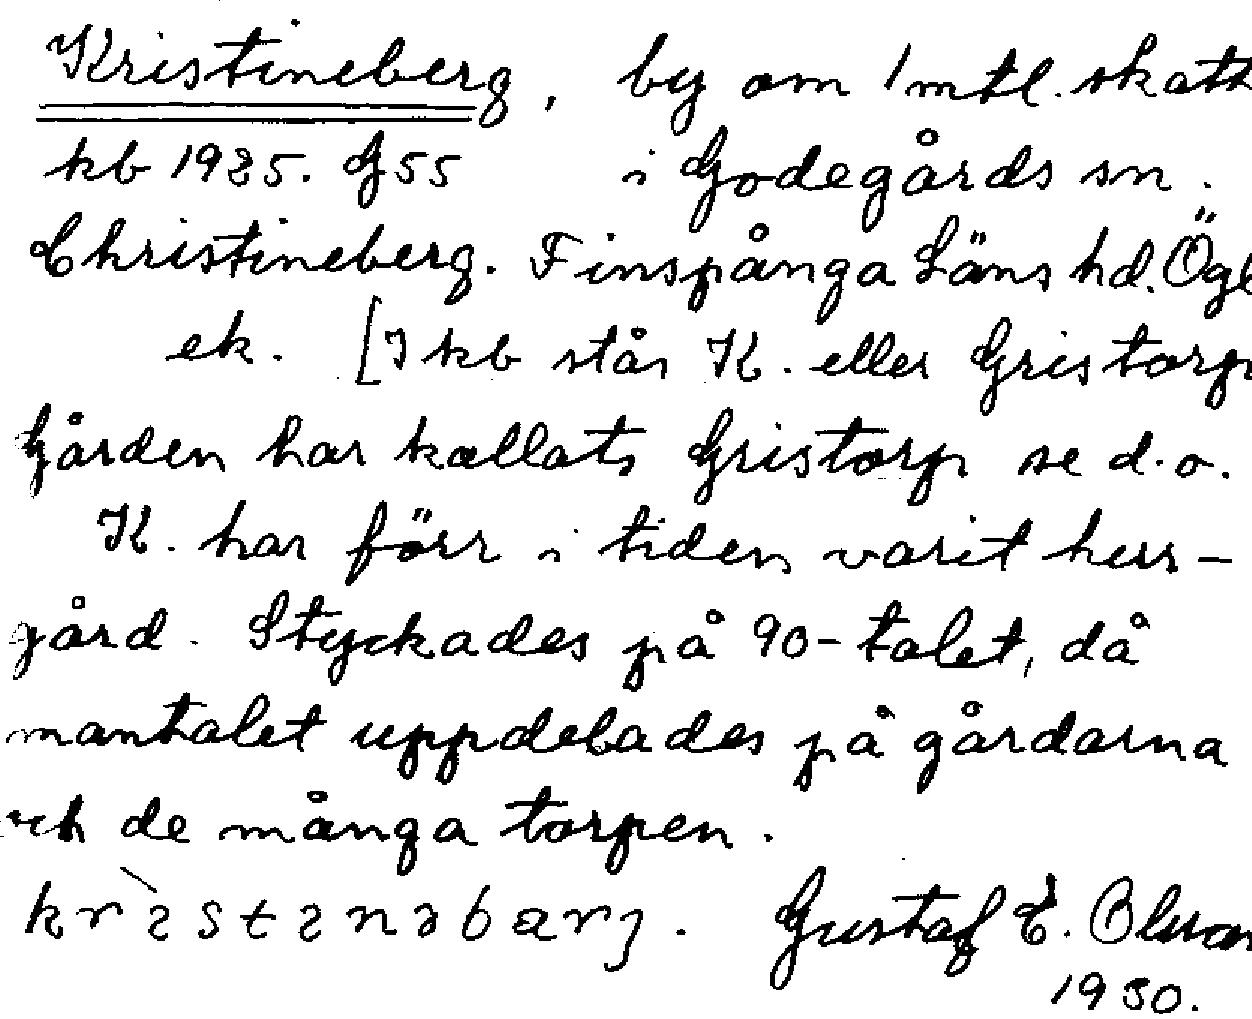 Kristineberg, by om 1 mtl. skatt
kb 1925. G 55 i Godegårds sn.
Christineberg. Finspånga Läns hd. Ögl
ek. [I kb står K. eller Gristorp
Gården har kallats Gristorp se d.o.
K. har förr i tiden varit herr-
gård. Styckades på 90-talet, då
mantalet uppdelades på gårdarna
och de många torpen.
Gustaf E. Olsson
1930.